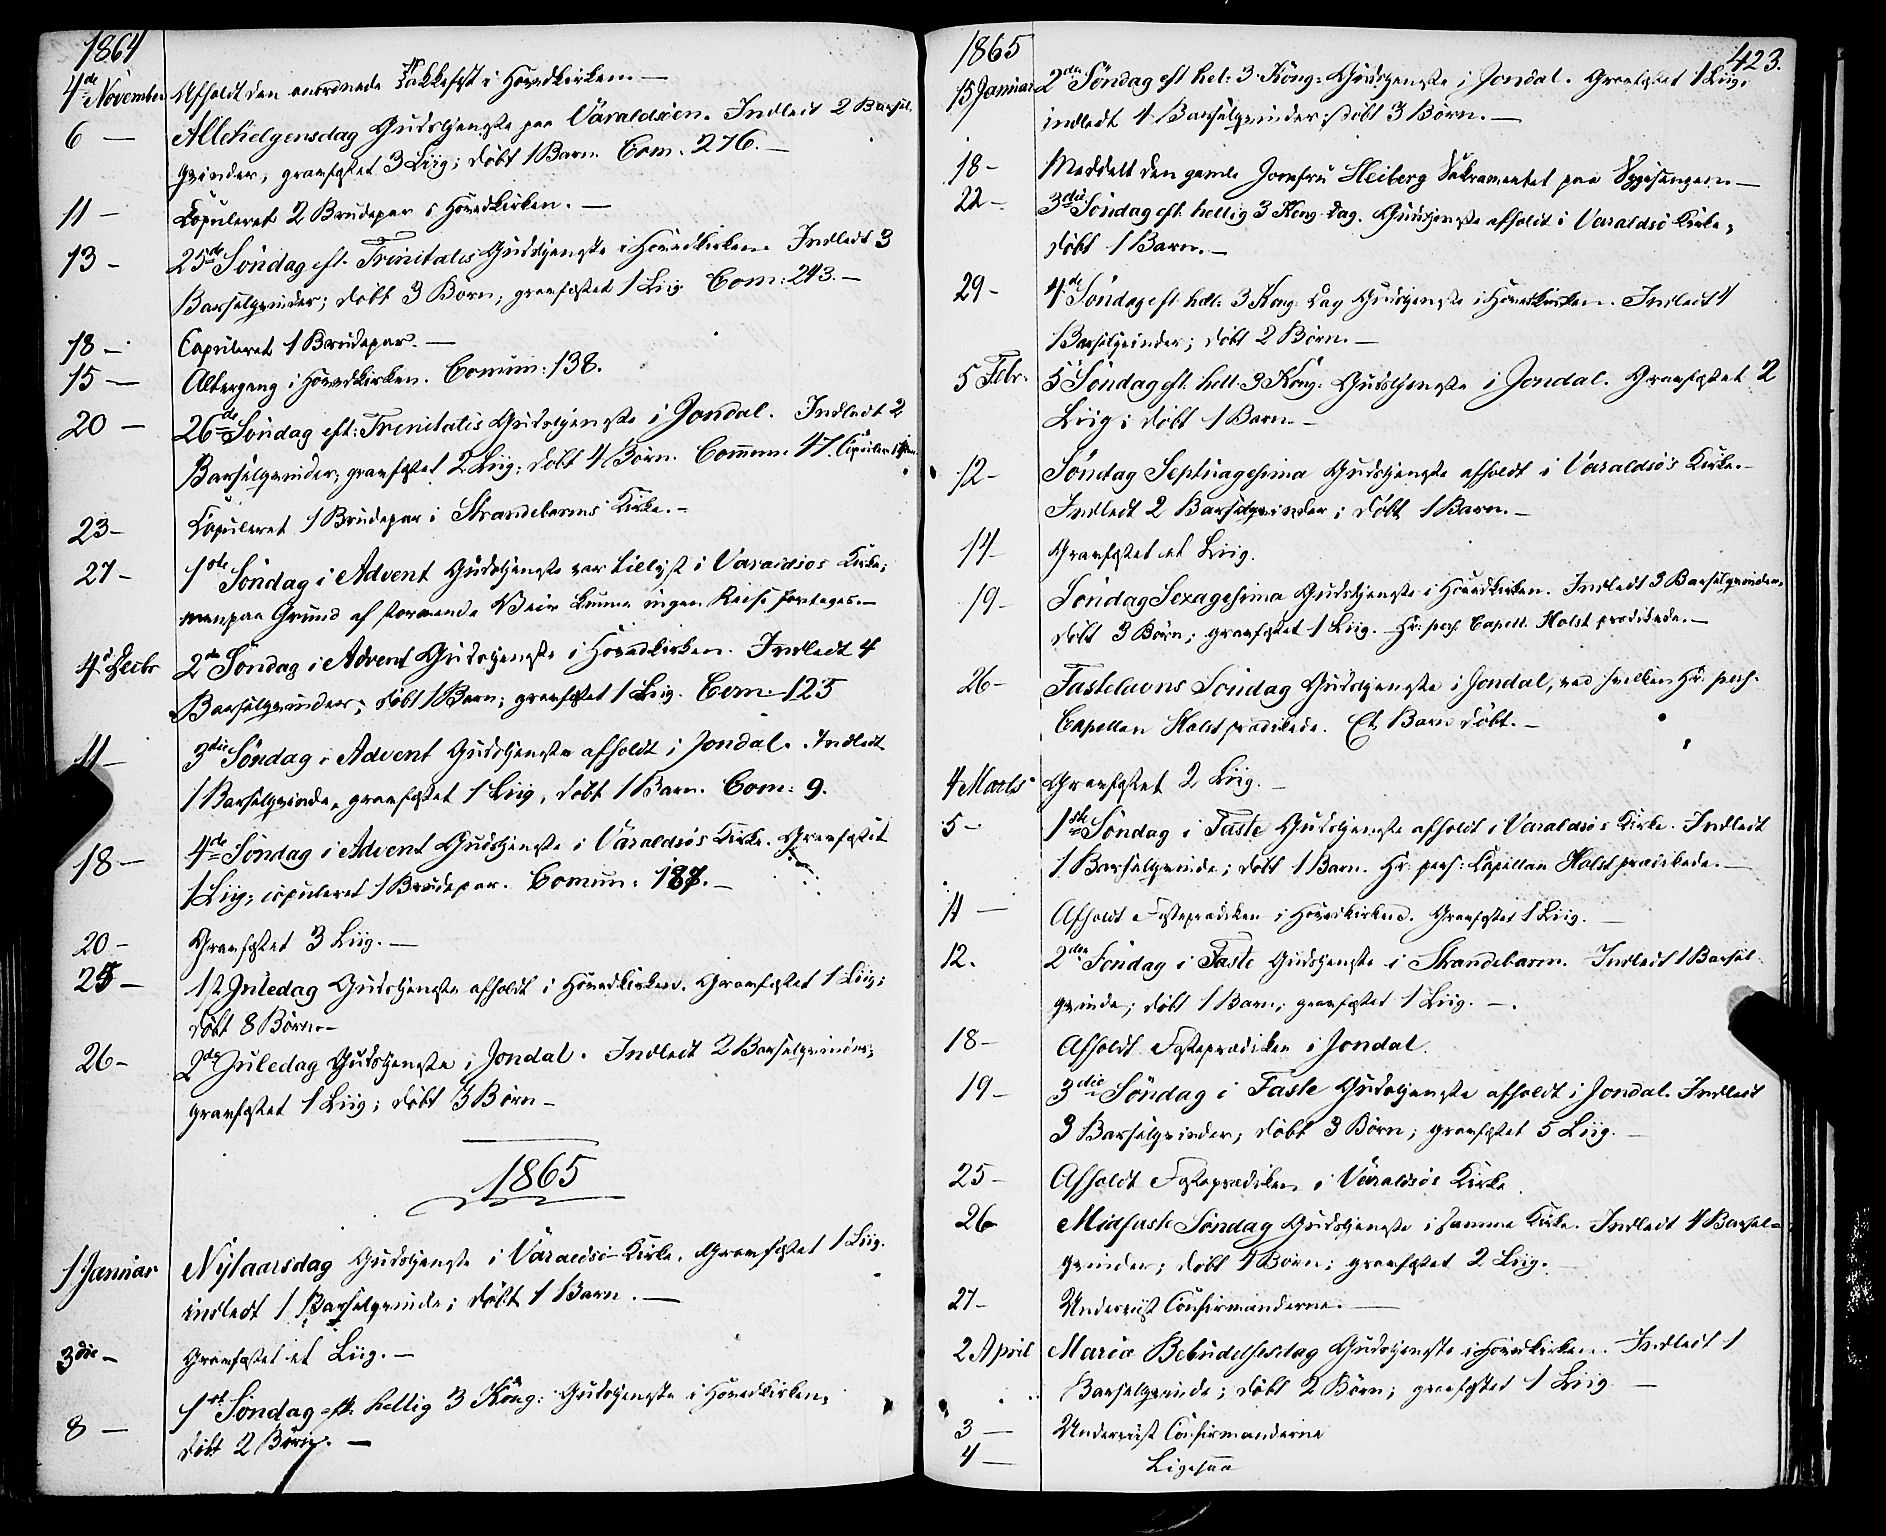 1864
4de November Afholdt den anordnede Takkefest i Hovedkirken. —
6 — Allehelgensdag Gudstjeneste paa Varaldsöen. Indledt 2 Barsel-
qvinder; gravfæstet 3 Liig; döbt 1 Barn. Com. 276. —
11 — Copuleret 2 Brudepar i Hovedkirken. —
13 — 25de Söndag eft. Trinitatis Gudstjeneste i Hovedkirken. Indledt 3
Barselqvinder; döbt 3 Börn, gravfæstet 1 Liig Com: 243. —
18 — Copuleret 1 Brudepar. —
15 — Altergang i Hovedkirken. Comun: 138.
20 — 26de Söndag eft: Trinitatis Gudstjeneste i Jondal. Indledt 2
Barselqvinder; gravfæstet 2 Liig; döbt 4 Börn. Commun. 47. Copuleret 1
23 — Copuleret 1 Brudepar i Strandebarms Kirke. —
27 — 1ste Söndag i Advent Gudstjeneste var tillyst i Varaldsöes Kirke;
men paa Grund af stormende Veir kunne ingen Reise foretages. —
4de Decbr 2den Söndag i Advent Gudstjeneste i Hovedkirken. Indledt 4
Barselqvinder; döbt 1 Barn; gravfæstet 1 Liig. Com: 125
11 — 3die Söndag i Advent Gudstjeneste afholdt i Jondal. Indledt
1 Barselqvinde, gravfæstet 1 Liig, döbt 1 Barn. Com: 9.
18 — 4de Söndag i Advent Gudstjeneste i Varaldsöes Kirke. Gravfæstet
1 Liig; copuleret 1 Brudepar. Comun: 187. —
20 — Gravfæstet 3 Liig. —
25 — 1st Juledag Gudstjeneste afholdt i Hovedkirken. Gravfæstet 1 Liig;
döbt 8 Börn. —
26 — 2de Juledag Gudstjeneste i Jondal. Indledt 2 Barselqvinder;
gravfæstet 1 Liig; döbt 3 Börn —
1865
1 Januar Nytaarsdag Gudstjeneste i Varaldsö Kirke. Gravfæstet 1 Liig.
indledt 1 Barselqvinde; döbt 1 Barn. —
3die — Gravfæstet et Liig. —
8 — 1ste Söndag eft: hellig 3 Kong: Gudstjeneste i Hovedkirken;
döbt 2 Börn. —
1865 423.
15 Januar 2den Söndag eft hel: 3 Kong: Gudstjeneste i Jondal. Gravfæstet 1 Liig;
indledt 4 Barselqvinder; döbt 3 Börn. —
18 — Meddelt den gamle Jomfru Heiberg Sakramentet paa Sygesengen. —
22 — 3die Söndag eft. hellig 3 Kong. Dag. Gudstjeneste afholdt i Varaldsö Kirke;
döbt 1 Barn. —
29 — 4de Söndag eft hell: 3 Kong: Dag Gudstjeneste i Hovedkirken. Indledt 4
Barselqvinder; döbt 2 Börn. —
5 Febr. 5 Söndag eft. hell: 3 Kong: Gudstjeneste i Jondal. Gravfæstet 2
Liig; döbt 1 Barn. —
12 — Söndag Septuagesima Gudstjeneste afholdt i Varaldsös Kirke. —
Indledt 2 Barselqvinder; döbt 1 Barn. —
14 — Gravfæstet et Liig.
19 — Söndag Sexagesima Gudstjeneste i Hovedkirken. Indledt 3 Barselqvinder,
döbt 3 Börn; gravfæstet 1 Liig. Hr: pers. Capell. Holst prædikede. —
26 — Fastelavns Söndag Gudstjeneste i Jondal, ved hvilken Hr. pers.
Capellan Holst prædikede. Et Barn döbt. —
4 Marts Gravfæstet 2 Liig. —
5 — 1ste Söndag i Faste Gudstjeneste afholdt i Varaldsöes Kirke. Indledt
1 Barselqvinde; döbt 1 Barn. Hr. pers: Capellan Holst prædikede. —
11 — Afholdt Fasteprædiken i Hovedkirken. Gravfæstet 1 Liig. —
12. 2den Söndag i Faste Gudstjeneste i Strandebarm. Indledt 1 Barsel-
qvinde; döbt 1 Barn; gravfæstet 1 Liig. —
18 — Afholdt Fasteprædiken i Jondal.
19 — 3die Söndag i Faste Gudstjeneste afholdt i Jondal. Indledt
3 Barselqvinder; döbt 3 Börn; gravfæstet 5 Liig. —
25 — Afholdt Fasteprædiken i Varaldsöes Kirke.
26 Midfaste Söndag Gudstjeneste i samme Kirke. Indledt 4 Barsel=
qvinder; döbt 4 Börn; gravfæstet 2 Liig. —
27 — Underviist Confirmanderne. —
2 April Mariæ Bebudelsesdag Gudstjeneste i Hovedkirken. Indledt 1
Barselqvinde; döbt 2 Börn; gravfæstet 1 Liig —
3 — Underviist Confirmanderne
4 — Ligesaa